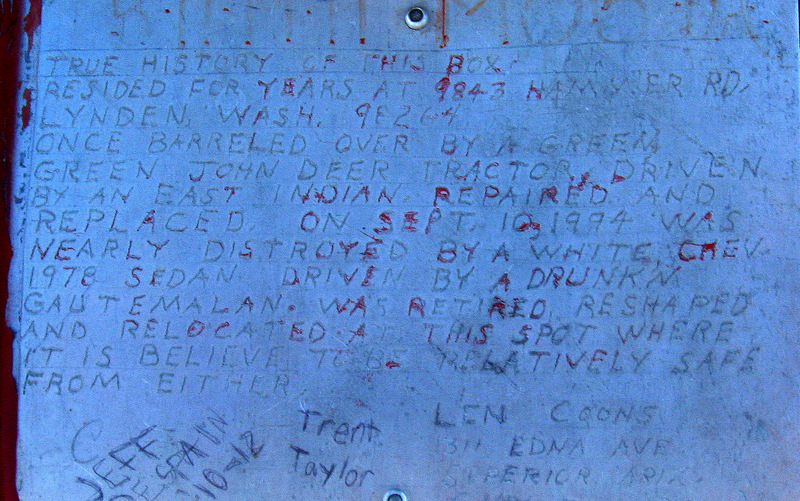 TRUE HISTORY OF THIS BOX
RESIDED FOR YEARS AT 9843 RD,
LYNDEN, WASH, 98264
ONCE BARRELED OVER BY A GREEN
GREEN JOHN DEER TRACTOR, DRIVEN
BY AN EAST INDIAN REPAIRED AND
REPLACED. ON SEPT. 10, 1994 WAS
NEARLY DISTROYED BY A WHITE, CHEV.
1978 SEDAN. DRIVEN BY A DRUNKN
GAUTEMALAN. WAS RETIRED, RESHAPED
AND RELOCATED AT THIS SPOT WHERE
IT IS BELIEVE TO BE RELATIVELY SAFE
FROM EITHER
LEN COONS
EDNA AVE
SUPERIOR ARIZ.
Trent
Taylor
JEFF